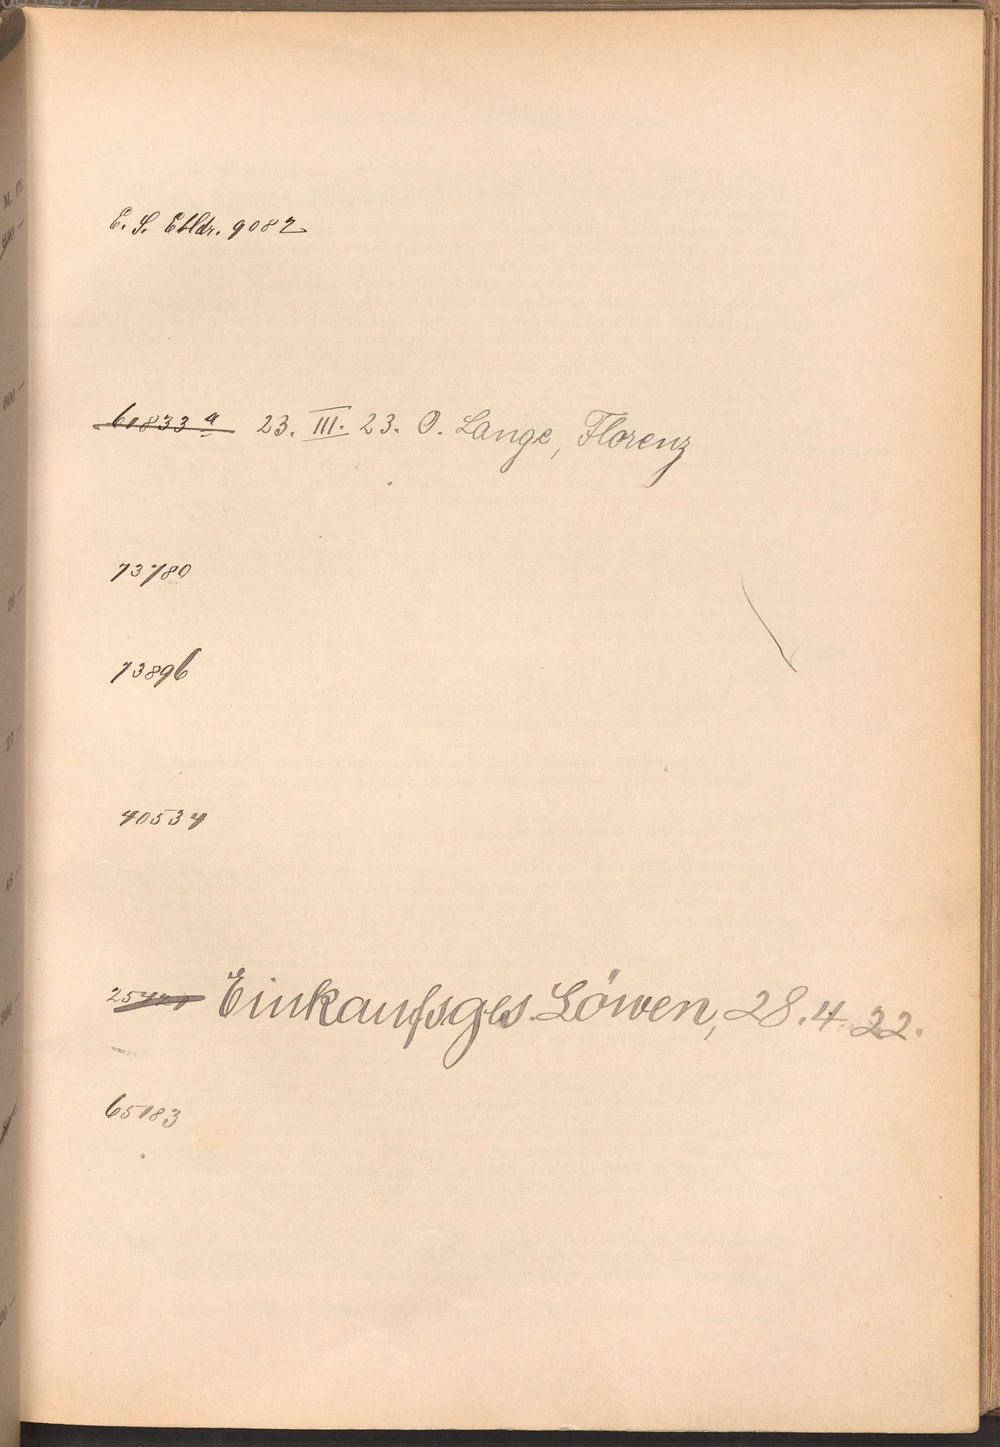 E. S. Ebldr. 9082
60833 a 23. III. 23. O. Lange, Florenz
73780
73896
40534
Einkaufsges Löwen, 28.4.22.
65183